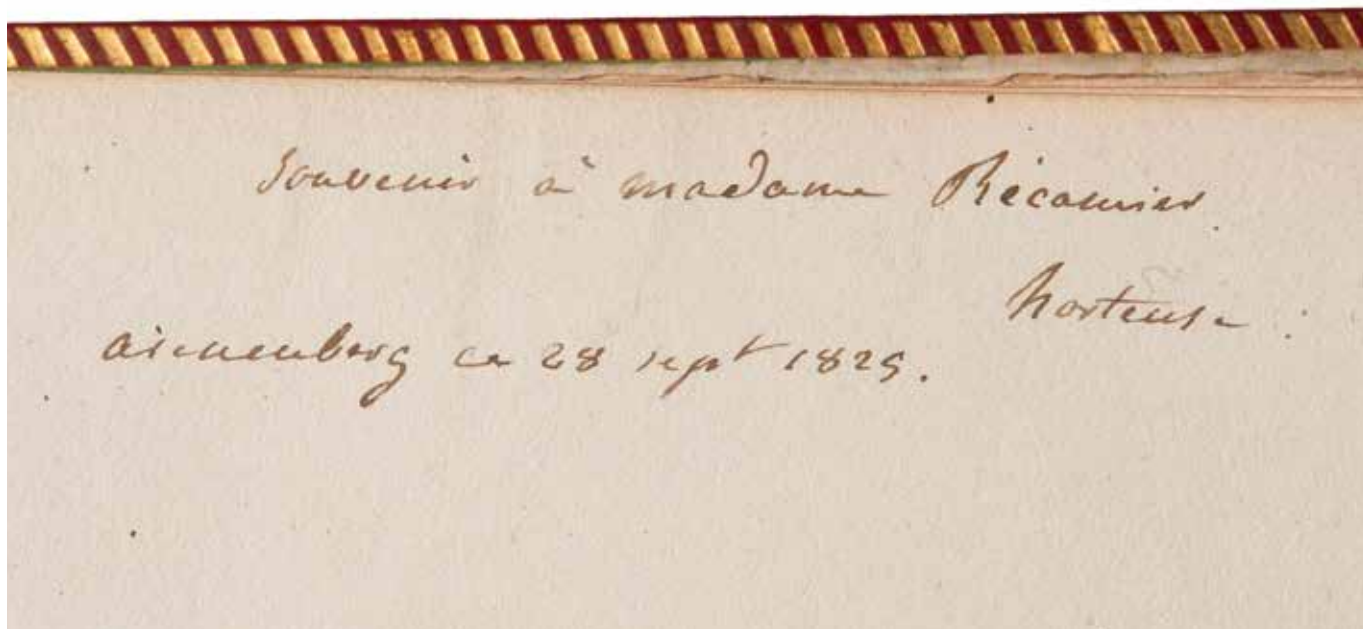 Souvenir à madame Récamier.
hortense
arenenberg ce 28 sept 1829.